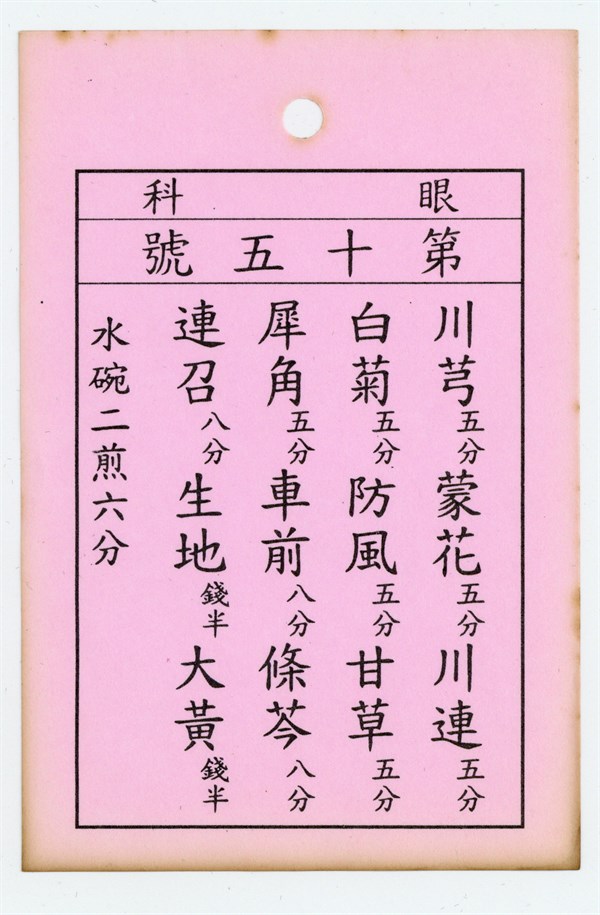 眼科
第十五號
川芎五分 蒙花五分 川連五分
白菊五分 防風五分 甘草五分
犀角五分 車前八分 條芩八分
連召八分 生地錢半 大黃錢半
水碗二煎六分